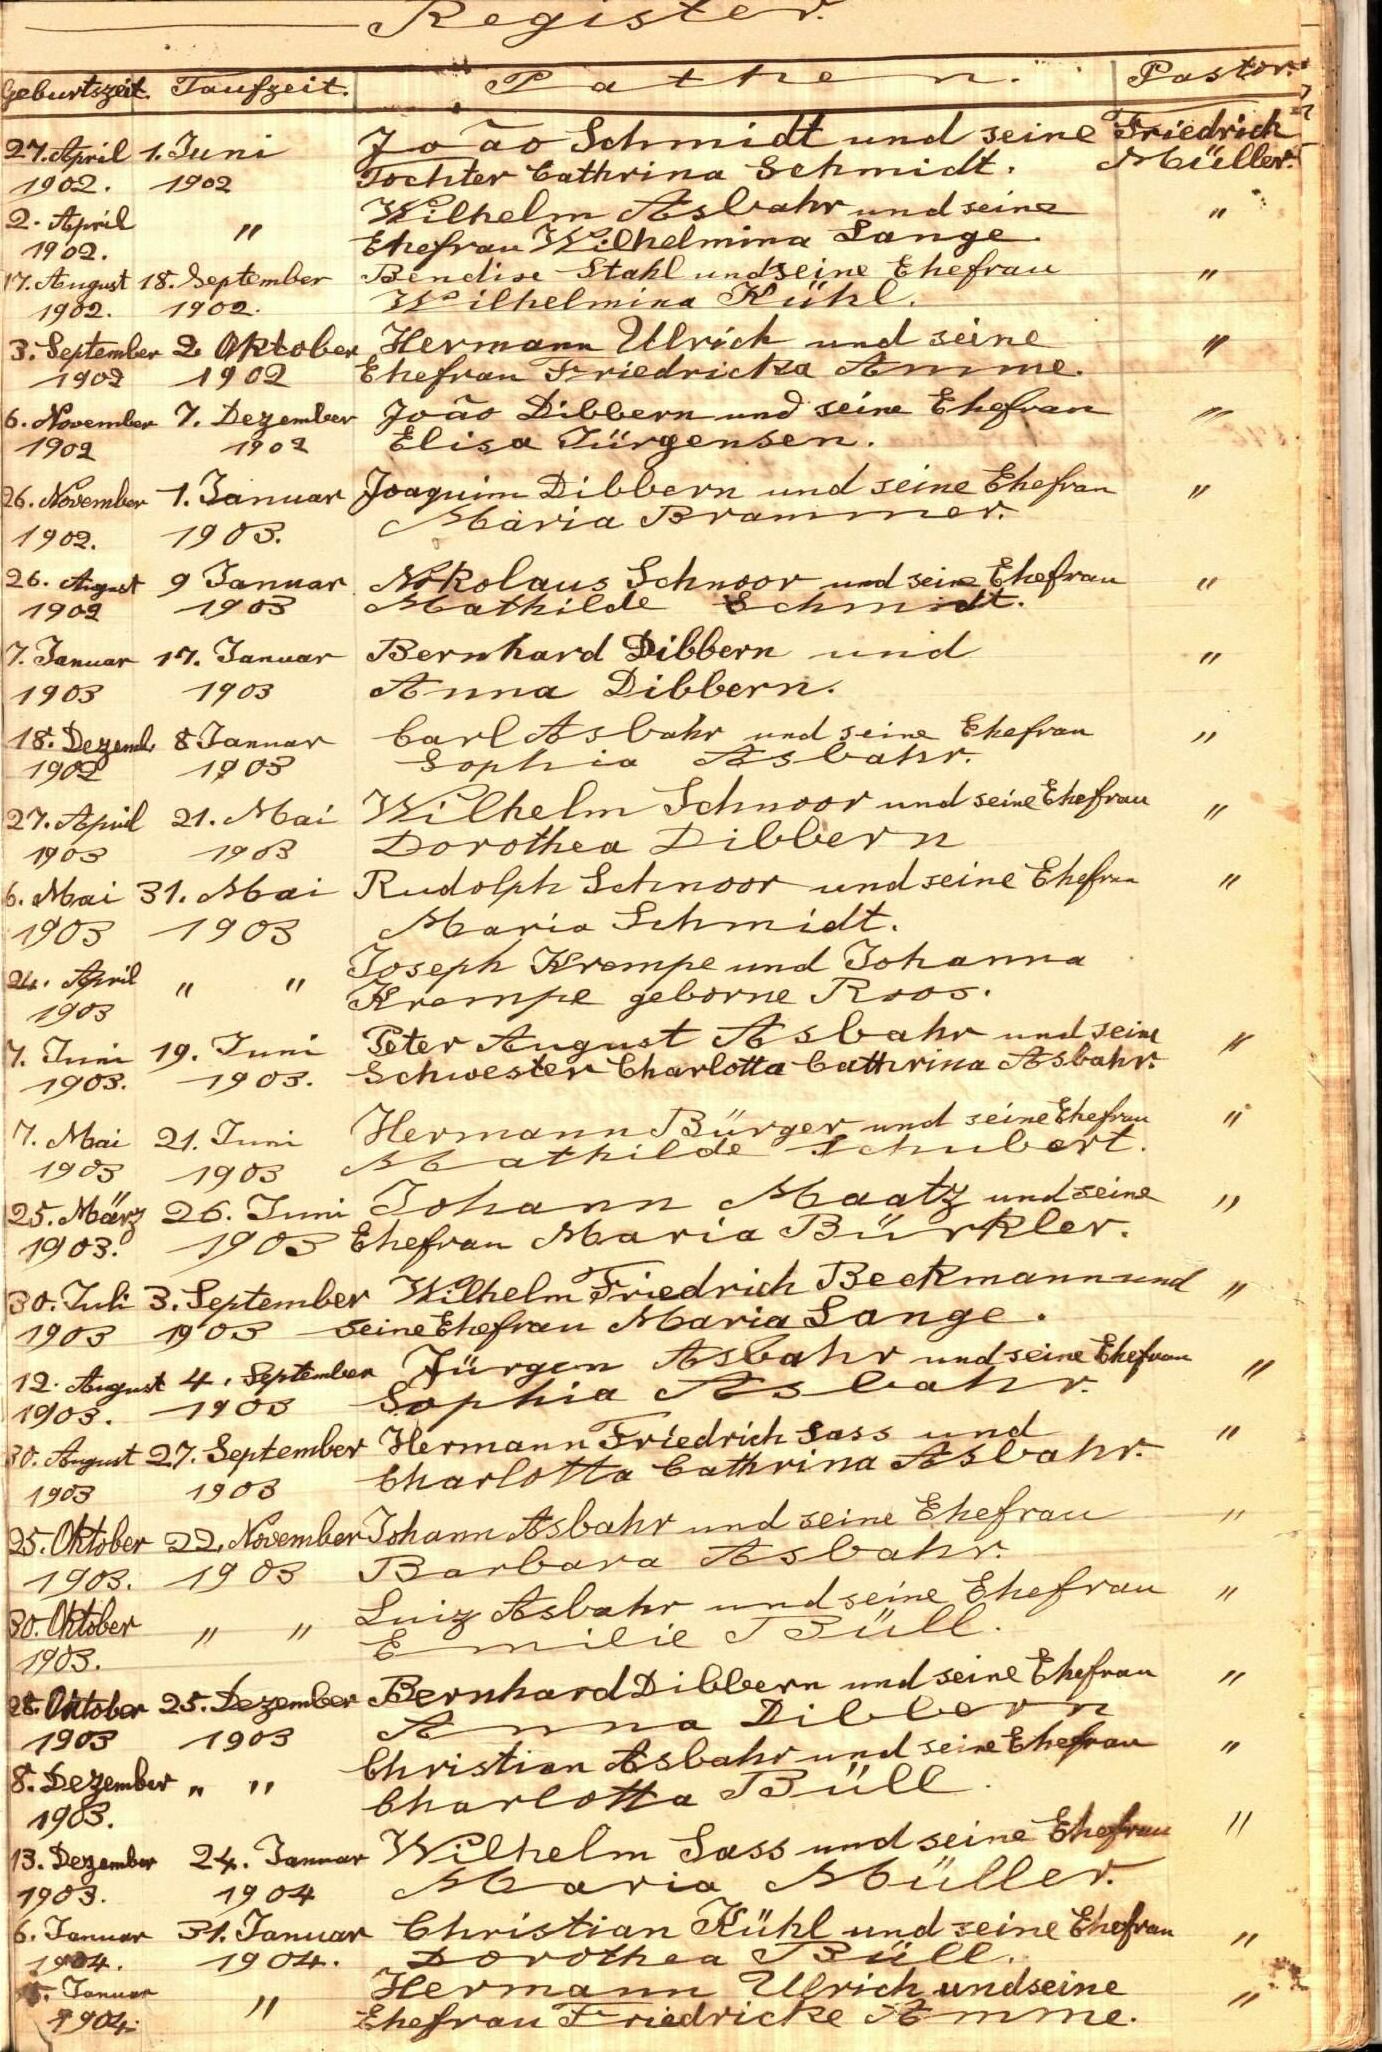 Register.
Geburtszeit. Taufzeit. Pathen. Pastor.
27. April 1. Juni João Schmidt und seine Friedrich
1902. 1902 Tochter Cathrina Schmidt. Müller.
2. April " Wilhelm Asbahr und seine "
1902. Ehefrau Wilhelmina Lange.
17. August 18. September Bendixe Stahl und seine Ehefrau "
1902. 1902. Wilhelmina Kühl.
3. September 2 Oktober Hermann Ulrich und seine "
1902 1902 Ehefrau Friedricka Amme.
6. November 7. Dezember João Dibbern und seine Ehefrau "
1902 1902 Elisa Jürgensen.
26. November 1. Januar Joaquim Dibbern und seine Ehefrau "
1902. 1903. Maria Brammer.
26. August 9 Januar Nikolaus Schnoor und seine Ehefrau "
1902 1903 Mathilde Schmidt.
7. Januar 17. Januar Bernhard Dibbern und "
1903 1903 Anna Dibbern.
18. Dezemb. 8 Januar Carl Asbahr und seine Ehefrau "
1902 1903 Sophia Asbahr.
27. April 21. Mai Wilhelm Schnoor und seine Ehefrau "
1903 1903 Dorothea Dibbern
6. Mai 31. Mai Rudolph Schnoor und seine Ehefrau "
1903 1903 Maria Schmidt.
24. April " " Joseph Krempe und Johanna
1903 Krempe geborne Roos.
7. Juni 19. Juni Peter August Asbahr und seine "
1903. 1903. Schwester Charlotta Cathrina Asbahr.
7. Mai 21. Juni Hermann Bürger und seine Ehefrau "
1903 1903 Mathilde Schubert.
25. März 26. Juni Johann Maatz und seine "
1903. 1903 Ehefrau Maria Bürkler.
30. Juli 3. September Wilhelm Friedrich Beckmann und "
1903 1903 seine Ehefrau Maria Lange.
12. August 4. September Jürgen Asbahr und seine Ehefrau "
1903. 1903 Sophia Asbahr.
30. August 27. September Hermann Friedrich Sass und "
1903 1903 Charlotta Cathrina Asbahr.
25. Oktober 22. November Johann Asbahr und seine Ehefrau "
1903. 1903 Barbara Asbahr.
30. Oktober " " Luiz Asbahr und seine Ehefrau "
1903. Emilie Büll.
28. Oktober 25. Dezember Bernhard Dibbern und seine Ehefrau "
1903 1903 Anna Dibbern
8. Dezember " " Christian Asbahr und seine Ehefrau "
1903. Charlotta Büll.
13. Dezember 24. Januar Wilhelm Sass und seine Ehefrau "
1903. 1904 Maria Müller.
6. Januar 31. Januar Christian Kühl und seine Ehefrau "
1904. 1904. Dorothea Büll.
Januar " Hermann Ulrich und seine "
1904. Ehefrau Friedricke Amme.